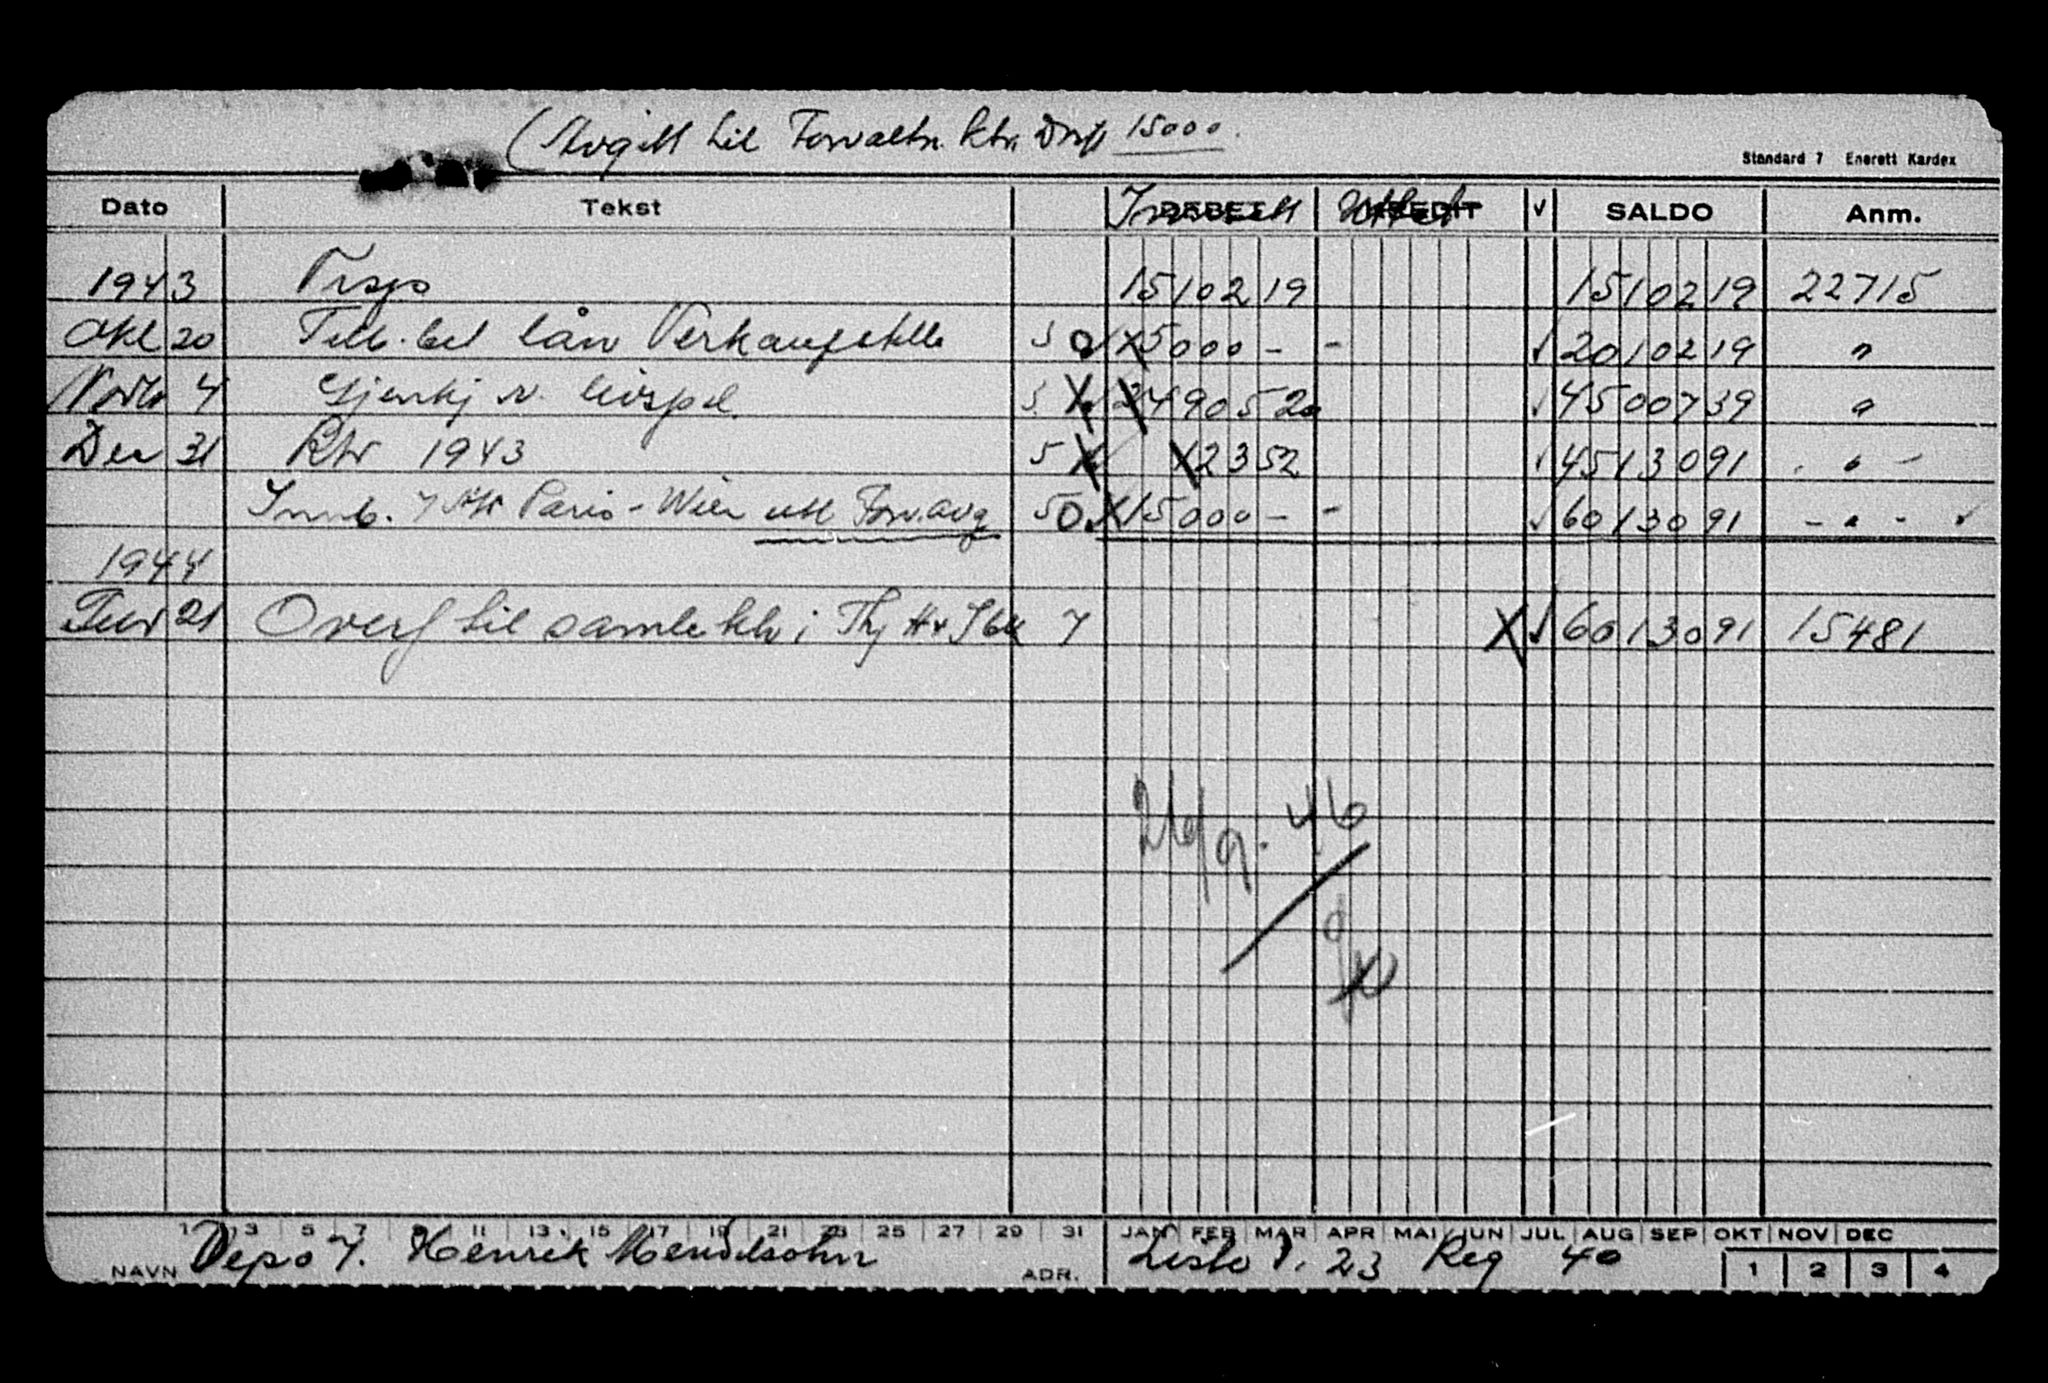 (Avgitt til Forvaltn. Ktr. Drift 15000.
Standard 7 Enerett Kardex
Dato Tekst DEBET KREDIT √ SALDO Anm.
Innsatt Uttatt
1943 Trsp 15102 19 15102 19 22715
Okt 20 Tilb. bet lån Verkaufstelle 50 5000 - - √ 20102 19 "
Novbr 4 5 24905 20 √ 45007 39 "
Des 31 Rtr 1943 5 123 52 √ 45130 91 . " -
Innb. Paris - Wien utl Forv. avg 50 15000 - - √ 60130 91 - " - √
1944
Febr 21 Overf til samlekto i Thj H & S bk 7 X √ 60130 91 15481
26/9. 46
1 3 5 7 9 11 13 15 17 19 21 23 25 27 29 31 JAN FEB MAR APR MAI JUN JUL AUG SEP OKT NOV DEC
NAVN Depo 7. Henrik Mendelsohn ADR. Liste 1. 23 Reg 40 1 2 3 4